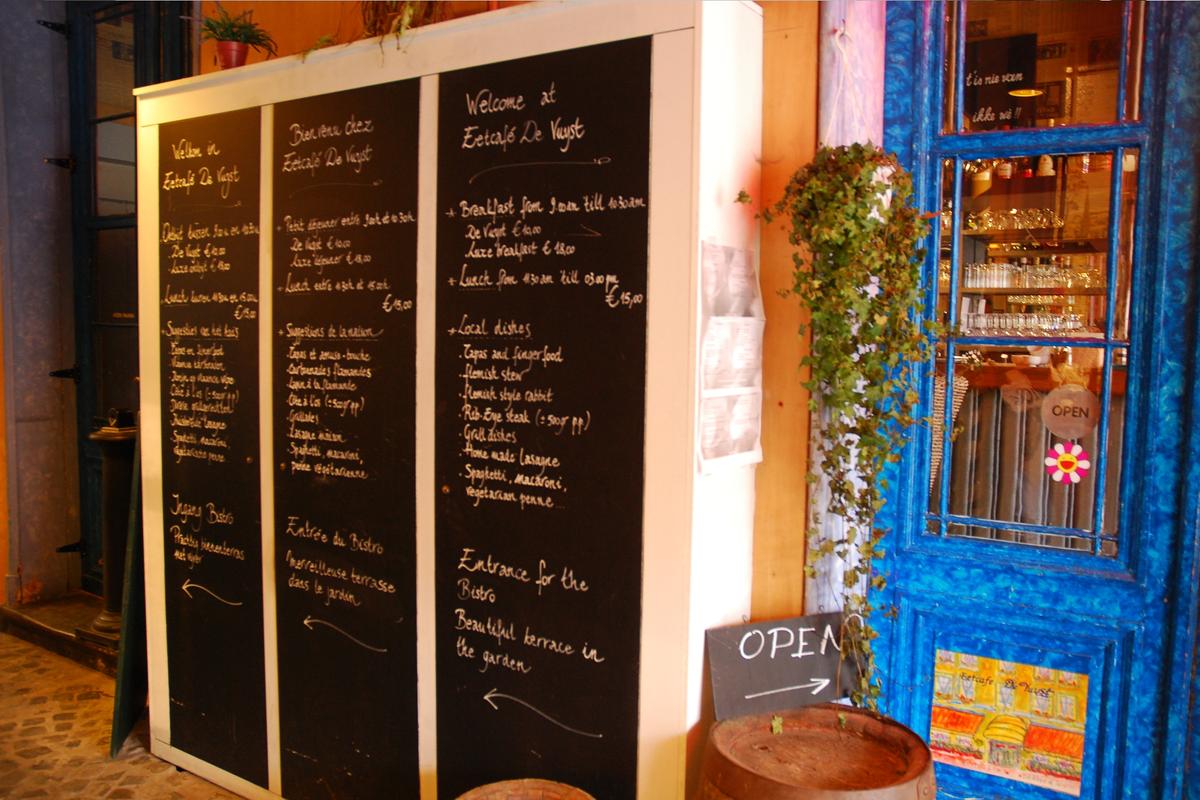 Welkom in
Eetcafé De Vuyst
De Vuyst € 10.00
Luxe ontbijt € 18.00
€ 15.00
Suggesties van het huis
Tapas en fingerfood
Spaghetti, macaroni,
vegetarische penne
Ingang Bistro
Prachtig binnenterras
Bienvenu chez
Eetcafé De Vuyst
+ Petit déjeuner entre 9.00h et 10.30h
De Vuyst € 10.00
Luxe déjeuner € 18,00
+ Lunch entre 11.30h et 15.00h
€ 15,00
+ Suggestions de la maison
. Tapas et amuse-bouche
. Carbonades flamandes
. Lapin à la flamande
. Côte à l'os (± 500gr pp)
. Grillades
. Lasagne maison
. Spaghetti, macaroni,
penne végétarienne
Entrée du Bistro
Merveilleuse terrasse
dans le jardin
Welcome at
Eetcafé De Vuyst
+ Breakfast from 9.00am 'till 10.30am
De Vuyst € 10.00
Luxe breakfast € 18,00
+ Lunch from 11.30am 'till 03.00pm
€ 15,00
+ Local dishes
. Tapas and fingerfood
. Flemish stew
. Flemish style rabbit
. Rib-Eye steak (± 500gr pp)
. Grill dishes
. Home made lasagne
. Spaghetti, macaroni,
vegetarian penne...
Entrance for the
Bistro
Beautiful terrace in
the garden
OPEN
t'is nie van
ikke wè !!
OPEN
Eetcafe De Vuyst